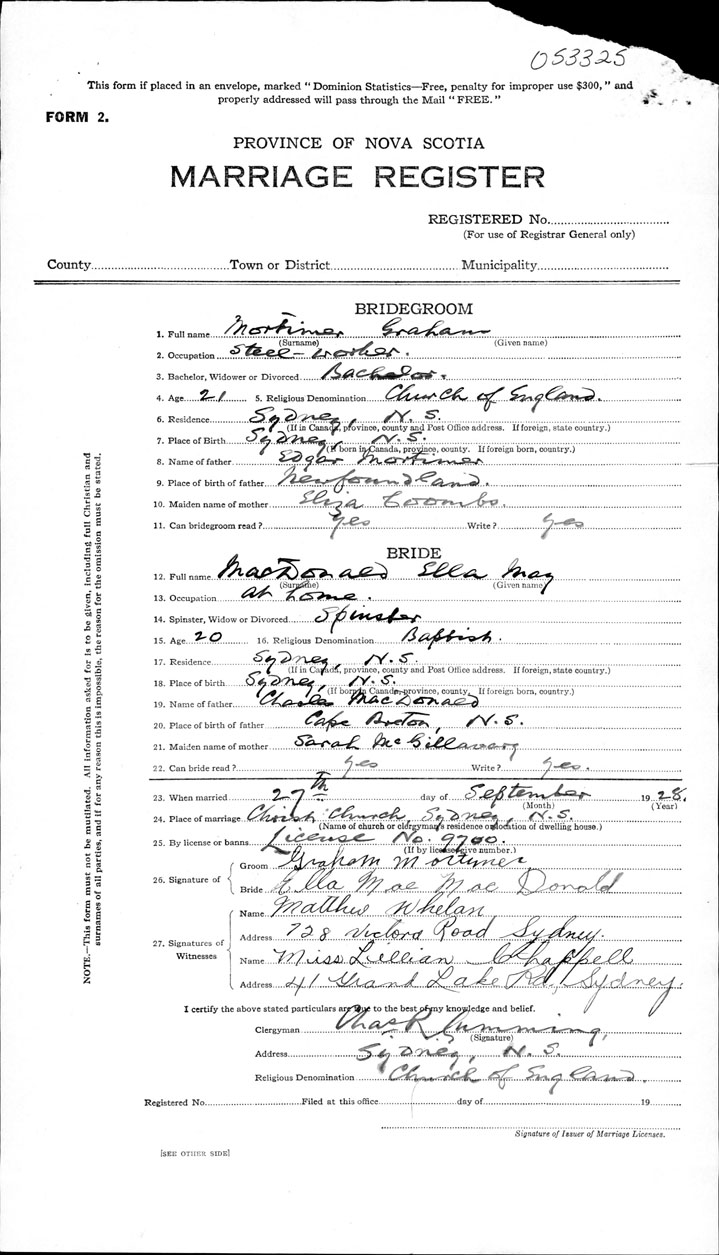 053325
This form if placed in an envelope, marked "Dominion Statistics—Free, penalty for improper use $300," and
properly addressed will pass through the Mail "FREE."
FORM 2.
PROVINCE OF NOVA SCOTIA
MARRIAGE REGISTER
REGISTERED No.
(For use of Registrar General only)
County Town or District Municipality
BRIDEGROOM
1. Full name Mortimer Graham
(Surname) (Given name)
2. Occupation Steel-worker.
3. Bachelor, Widower or Divorced Bachelor.
4. Age 21 5. Religious Denomination Church of England.
6. Residence Sydney, N.S.
(If in Canada, province, county and Post Office address. If foreign, state country.)
7. Place of Birth Sydney, N.S.
(If born in Canada, province, county. If foreign born, country.)
8. Name of father Edgar Mortimer
9. Place of birth of father Newfoundland.
10. Maiden name of mother Eliza Coombs.
11. Can bridegroom read? Yes Write? Yes
BRIDE
12. Full name MacDonald Ella May
(Surname) (Given name)
13. Occupation at home.
14. Spinster, Widow or Divorced Spinster
15. Age 20 16. Religious Denomination Baptist.
17. Residence Sydney, N.S.
(If in Canada, province, county and Post Office address. If foreign, state country.)
18. Place of birth Sydney, N.S.
(If born in Canada, province, county, If foreign born, country.)
19. Name of father Charles MacDonald
20. Place of birth of father Cape Breton, N.S.
21. Maiden name of mother Sarah McGillavary
22. Can bride read? Yes Write? Yes.
23. When married 27th day of September 1928.
(Month) (Year)
24. Place of marriage Christ Church, Sydney, N.S.
(Name of church or clergyman's residence or location of dwelling house.)
25. By license or banns License No. 9700.
(If by license give number.)
26. Signature of
Groom Graham Mortimer
Bride Ella Mae Mac Donald
27. Signatures of Witnesses
Name Matthew Whelan
Address 728 Victoria Road Sydney.
Name Miss Lillian Chappell
Address 41 Grand Lake Rd, Sydney.
I certify the above stated particulars are true to the best of my knowledge and belief.
Clergyman Chas R Cumming,
(Signature)
Address Sydney, N.S.
Religious Denomination Church of England.
Registered No. Filed at this office day of 19
Signature of Issuer of Marriage Licenses.
[SEE OTHER SIDE]
NOTE.—This form must not be mutilated. All information asked for is to be given, including full Christian and
surnames of all parties, and if for any reason this is impossible, the reason for the omission must be stated.